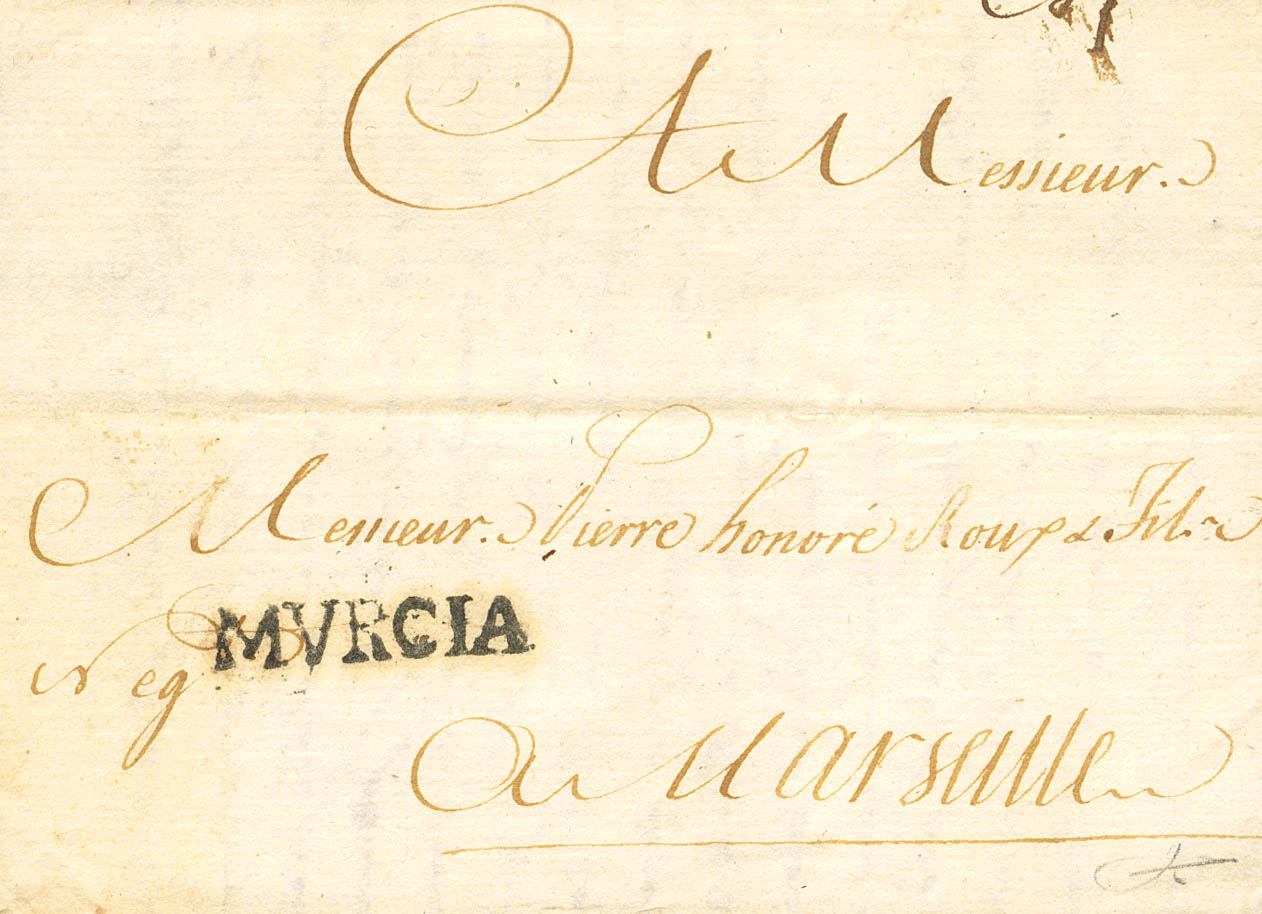 A Messieur.
Messieur. Pierre honoré Roux & Fil.
MVRCIA
Neg.
a Marseille